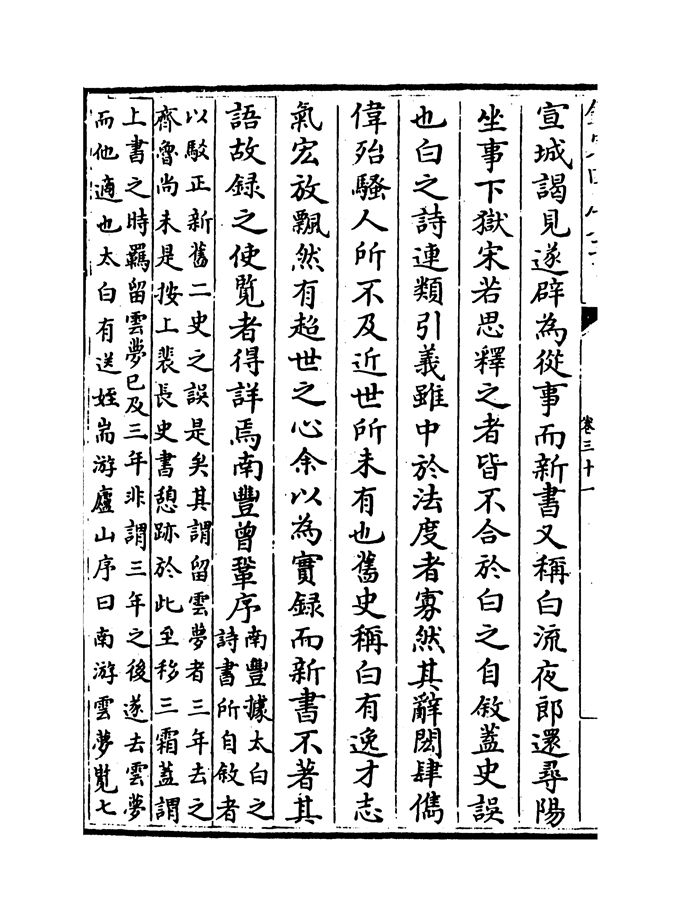 卷三十一
宣城謁見遂辟為從事而新書又稱白流夜郎還尋陽
坐事下獄宋若思釋之者皆不合於白之自敘蓋史誤
也白之詩連類引義雖中於法度者寡然其辭閎肆儁
偉殆騷人所不及近世所未有也舊史稱白有逸才志
氣宏放飄然有超世之心余以為實録而新書不著其
語故録之使覽者得詳焉南豐曾鞏序
南豐據太白之
詩書所自敘者
以駁正新舊二史之誤是矣其謂留雲夢者三年去之
齊魯尚未是按上裴長史書憩跡於此至移三霜蓋謂
上書之時羈留雲夢已及三年非謂三年之後遂去雲夢
而他適也太白有送姪耑游廬山序曰南游雲夢覽七